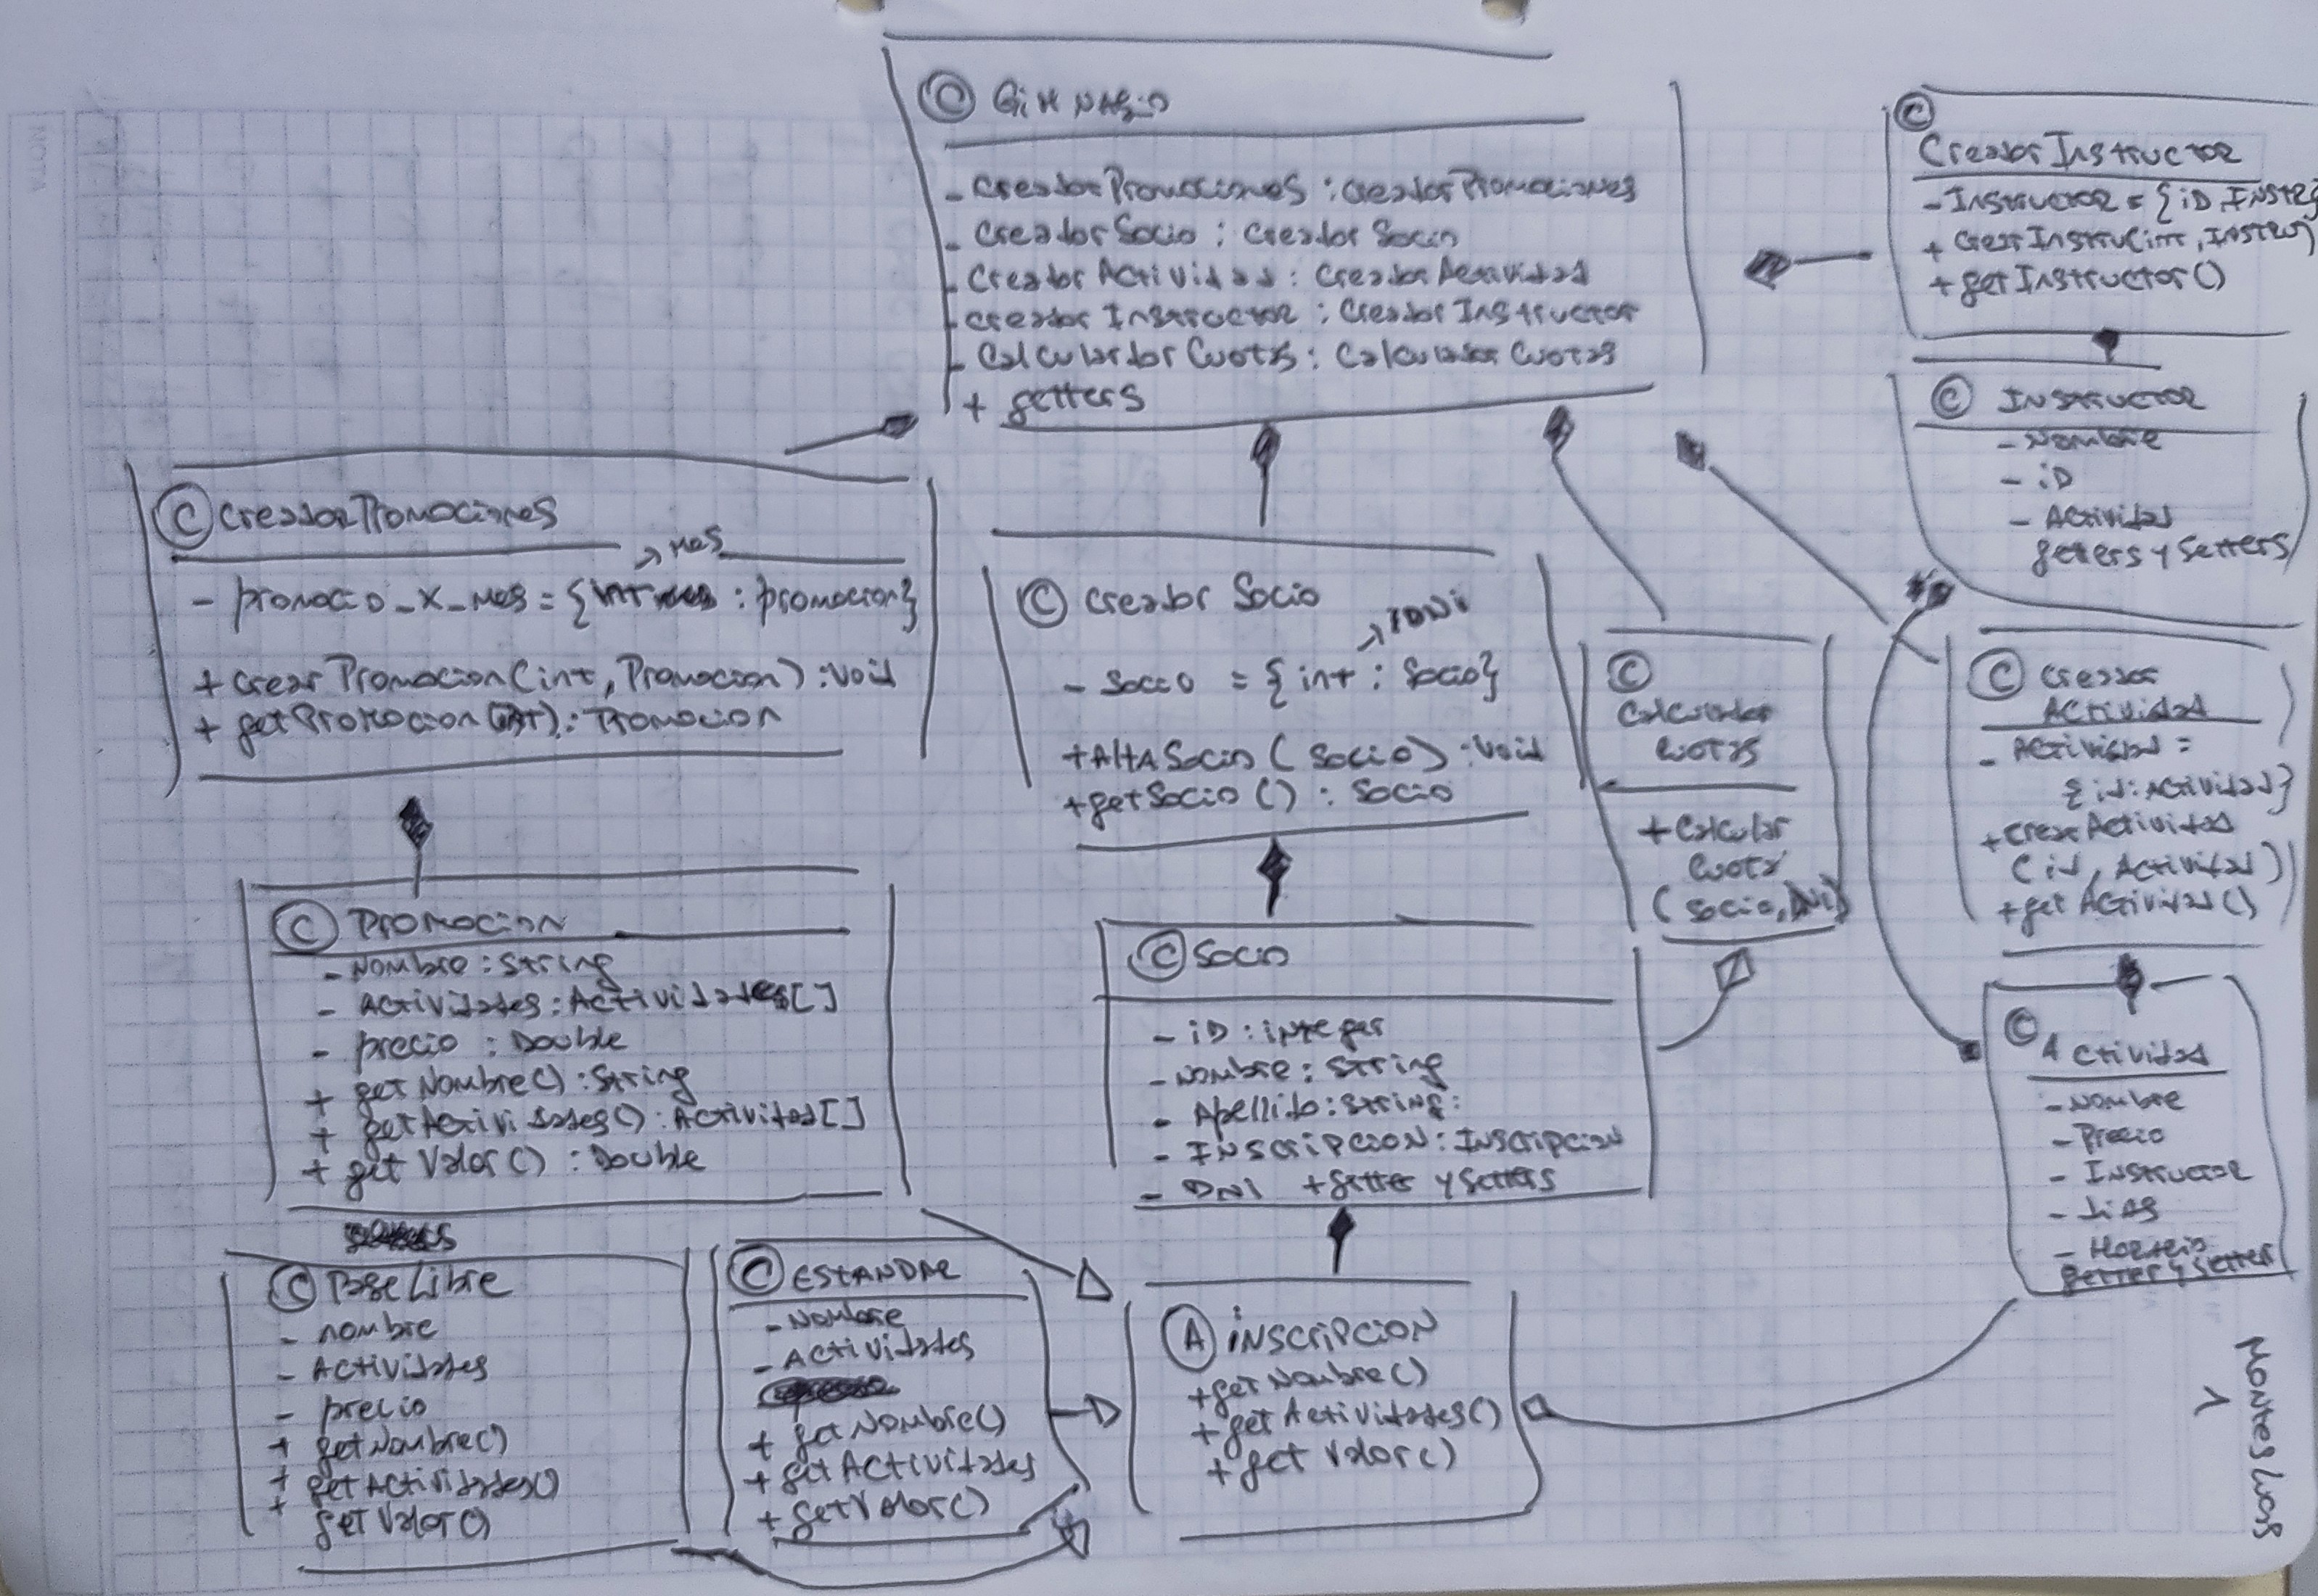 NOTA
C GiMNASio
- CreadorPromociones : CreadorPromociones
- CreadorSocio : CreadorSocio
- CreadorActividad : CreadorActividad
- CreadorInstructor : CreadorInstructor
- CalculardorCuotas : CalculadorCuotas
+ getters
C
CreadorInstructor
- Instructor = { iD, INSTR}
+ CrearInstru(int, INSTRU)
+ getInstructor()
C INSTRUCTOR
- Nombre
- iD
- Actividad
getters y setters
C CreadorPromociones
→ Mes
- promocio_X_Mes = { int : promocion}
+ crearPromocion(int, Promocion) : Void
+ getPromocion(int) : Promocion
C Creador Socio
- Socio = { int : Socio}
+AltaSocio ( Socio) : Void
+getSocio () : Socio
C
Calculador
Cuotas
+ Calcular
Cuota
( Socio, DNi)
C Creador
Actividad
- Actividad =
{id: Actividad}
+crearActividad
( id, Actividad)
+get Actividad()
C Promocion
- Nombre : String
- Actividades : Actividades[]
- precio : Double
+ getNombre() : String
+ getActividades() : Actividad[]
+ getValor() : Double
C Socio
- iD : integer
- Nombre : String
- Apellido : String :
- INSCripcion : INSCripcion
- DNi + getter y setters
C Actividad
- Nombre
- Precio
- Instructor
- dias
- Horario
getter y setter
C PaseLibre
- nombre
- Actividades
- precio
+ getNombre()
+ getActividades()
+ getValor()
C ESTANDAR
- Nombre
- Actividades
+ getNombre()
+ getActividades
+ getValor()
A iNSCRiPCiON
+getNombre()
+getActividades()
+ get Valor()
Montes Lucas
1